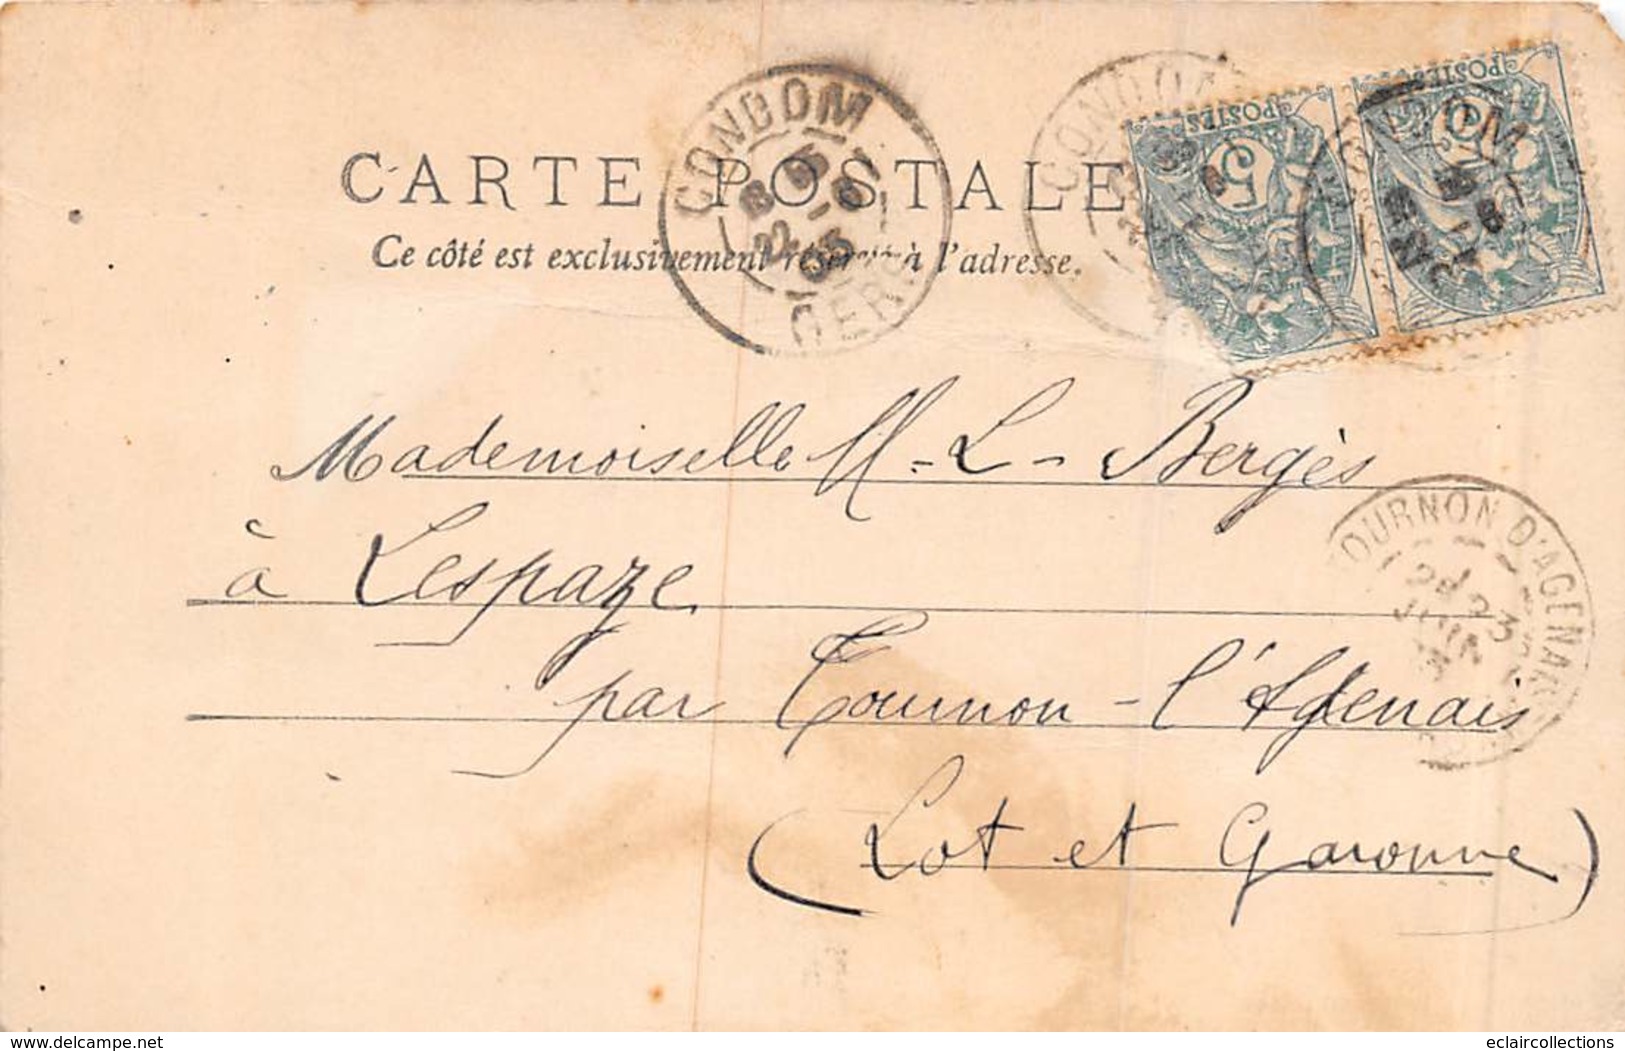 CARTE POSTALE
Ce côté est exclusivement réservé à l'adresse.
CONDOM
GERS
CONDOM
POSTES
5
POSTES
5
CONDOM
Mademoiselle M-L- Bergès
à Lespaze
par Tournon-l'Agenais
(Lot et Garonne)
TOURNON D'AGENAIS
JUIN
www.delcampe.net
eclaircollections